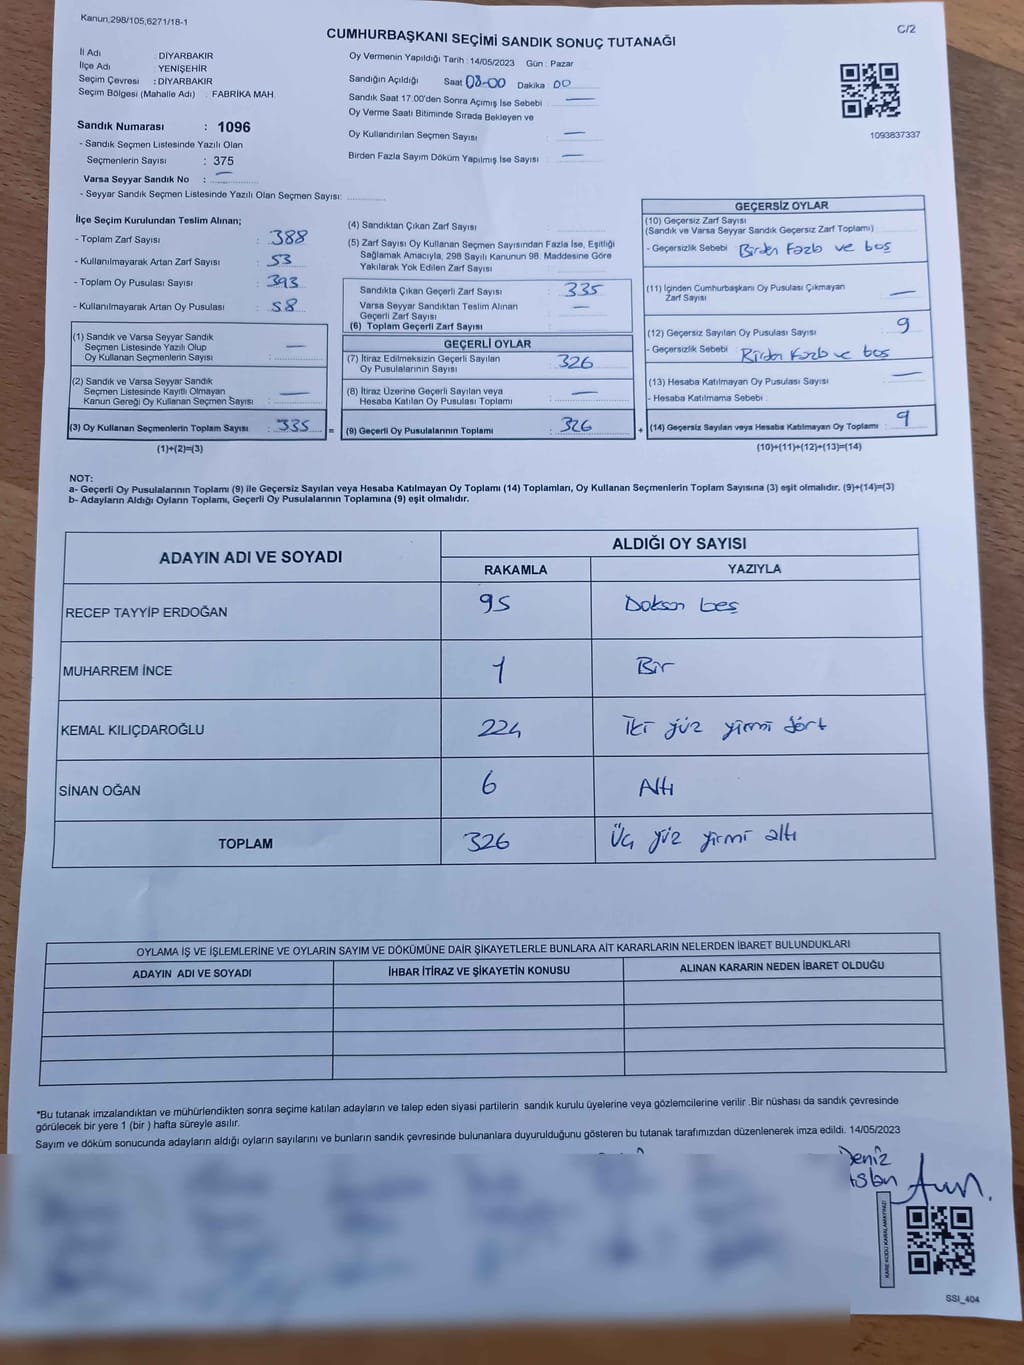 Kanun,298/105,6271/18-1
C/2
CUMHURBAŞKANI SEÇİMİ SANDIK SONUÇ TUTANAĞI
İl Adı : DİYARBAKIR
İlçe Adı : YENİŞEHİR
Seçim Çevresi : DİYARBAKIR
Seçim Bölgesi (Mahalle Adı) : FABRİKA MAH.
Sandık Numarası : 1096
- Sandık Seçmen Listesinde Yazılı Olan
Seçmenlerin Sayısı : 375
Varsa Seyyar Sandık No : —
- Seyyar Sandık Seçmen Listesinde Yazılı Olan Seçmen Sayısı:
Oy Vermenin Yapıldığı Tarih : 14/05/2023 Gün : Pazar
Sandığın Açıldığı Saat 08-00 Dakika : 00
Sandık Saat 17.00'den Sonra Açımış İse Sebebi : —
Oy Verme Saati Bitiminde Sırada Bekleyen ve
Oy Kullandırılan Seçmen Sayısı : —
Birden Fazla Sayım Döküm Yapılmış İse Sayısı : —
1093837337
İlçe Seçim Kurulundan Teslim Alınan;
- Toplam Zarf Sayısı : 388
- Kullanılmayarak Artan Zarf Sayısı : 53
- Toplam Oy Pusulası Sayısı : 393
- Kullanılmayarak Artan Oy Pusulası : 58
(1) Sandık ve Varsa Seyyar Sandık
Seçmen Listesinde Yazılı Olup
Oy Kullanan Seçmenlerin Sayısı : —
(2) Sandık ve Varsa Seyyar Sandık
Seçmen Listesinde Kayıtlı Olmayan
Kanun Gereği Oy Kullanan Seçmen Sayısı : —
(3) Oy Kullanan Seçmenlerin Toplam Sayısı : 335
=
(1)+(2)=(3)
(4) Sandıktan Çıkan Zarf Sayısı :
(5) Zarf Sayısı Oy Kullanan Seçmen Sayısından Fazla İse, Eşitliği
Sağlamak Amacıyla, 298 Sayılı Kanunun 98. Maddesine Göre
Yakılarak Yok Edilen Zarf Sayısı :
Sandıkta Çıkan Geçerli Zarf Sayısı : 335
Varsa Seyyar Sandıktan Teslim Alınan
Geçerli Zarf Sayısı : —
(6) Toplam Geçerli Zarf Sayısı
GEÇERLİ OYLAR
(7) İtiraz Edilmeksizin Geçerli Sayılan
Oy Pusulalarının Sayısı : 326
(8) İtiraz Üzerine Geçerli Sayılan veya
Hesaba Katılan Oy Pusulası Toplamı : —
(9) Geçerli Oy Pusulalarının Toplamı : 326
+
GEÇERSİZ OYLAR
(10) Geçersiz Zarf Sayısı
(Sandık ve Varsa Seyyar Sandık Geçersiz Zarf Toplamı)
- Geçersizlik Sebebi Birden Fazla ve boş
(11) İçinden Cumhurbaşkanı Oy Pusulası Çıkmayan
Zarf Sayısı —
(12) Geçersiz Sayılan Oy Pusulası Sayısı 9
- Geçersizlik Sebebi Birden Fazla ve boş
(13) Hesaba Katılmayan Oy Pusulası Sayısı —
- Hesaba Katılmama Sebebi :
(14) Geçersiz Sayılan veya Hesaba Katılmayan Oy Toplamı : 9
(10)+(11)+(12)+(13)=(14)
NOT:
a- Geçerli Oy Pusulalarının Toplamı (9) ile Geçersiz Sayılan veya Hesaba Katılmayan Oy Toplamı (14) Toplamları, Oy Kullanan Seçmenlerin Toplam Sayısına (3) eşit olmalıdır. (9)+(14)=(3)
b- Adayların Aldığı Oyların Toplamı, Geçerli Oy Pusulalarının Toplamına (9) eşit olmalıdır.
ADAYIN ADI VE SOYADI
ALDIĞI OY SAYISI
RAKAMLA YAZIYLA
RECEP TAYYİP ERDOĞAN 95 Doksan beş
MUHARREM İNCE 1 Bir
KEMAL KILIÇDAROĞLU 224 İki yüz yirmi dört
SİNAN OĞAN 6 Altı
TOPLAM 326 Üç yüz yirmi altı
OYLAMA İŞ VE İŞLEMLERİNE VE OYLARIN SAYIM VE DÖKÜMÜNE DAİR ŞİKAYETLERLE BUNLARA AİT KARARLARIN NELERDEN İBARET BULUNDUKLARI
ADAYIN ADI VE SOYADI İHBAR İTİRAZ VE ŞİKAYETİN KONUSU ALINAN KARARIN NEDEN İBARET OLDUĞU
*Bu tutanak imzalandıktan ve mühürlendikten sonra seçime katılan adayların ve talep eden siyasi partilerin sandık kurulu üyelerine veya gözlemcilerine verilir .Bir nüshası da sandık çevresinde
görülecek bir yere 1 (bir ) hafta süreyle asılır.
Sayım ve döküm sonucunda adayların aldığı oyların sayılarını ve bunların sandık çevresinde bulunanlara duyurulduğunu gösteren bu tutanak tarafımızdan düzenlenerek imza edildi. 14/05/2023
Deniz
KARE KODU KARALAMAYINIZ!
SSI_404